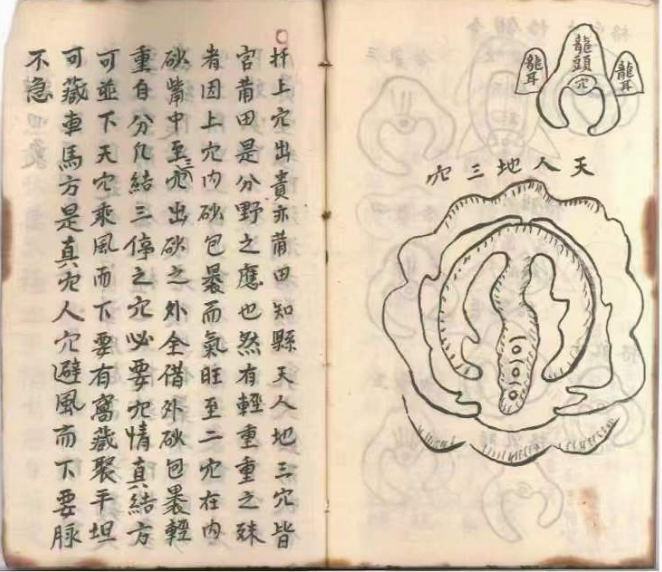 龍頭
穴
龍耳
龍耳
天人地三穴
扦上穴出貴亦莆田知縣天人地三穴皆
官莆田是分野之應也然有輕重重之殊
者因上穴內砂包裹而氣旺至二穴在內
砂嘴中至三穴出砂之外全借外砂包裹輕
重自分凡結三停之穴必要穴情真結方
可並下天穴乘風而下要有窩藏聚平坦
可藏車馬方是真穴人穴避風而下要脉
不急